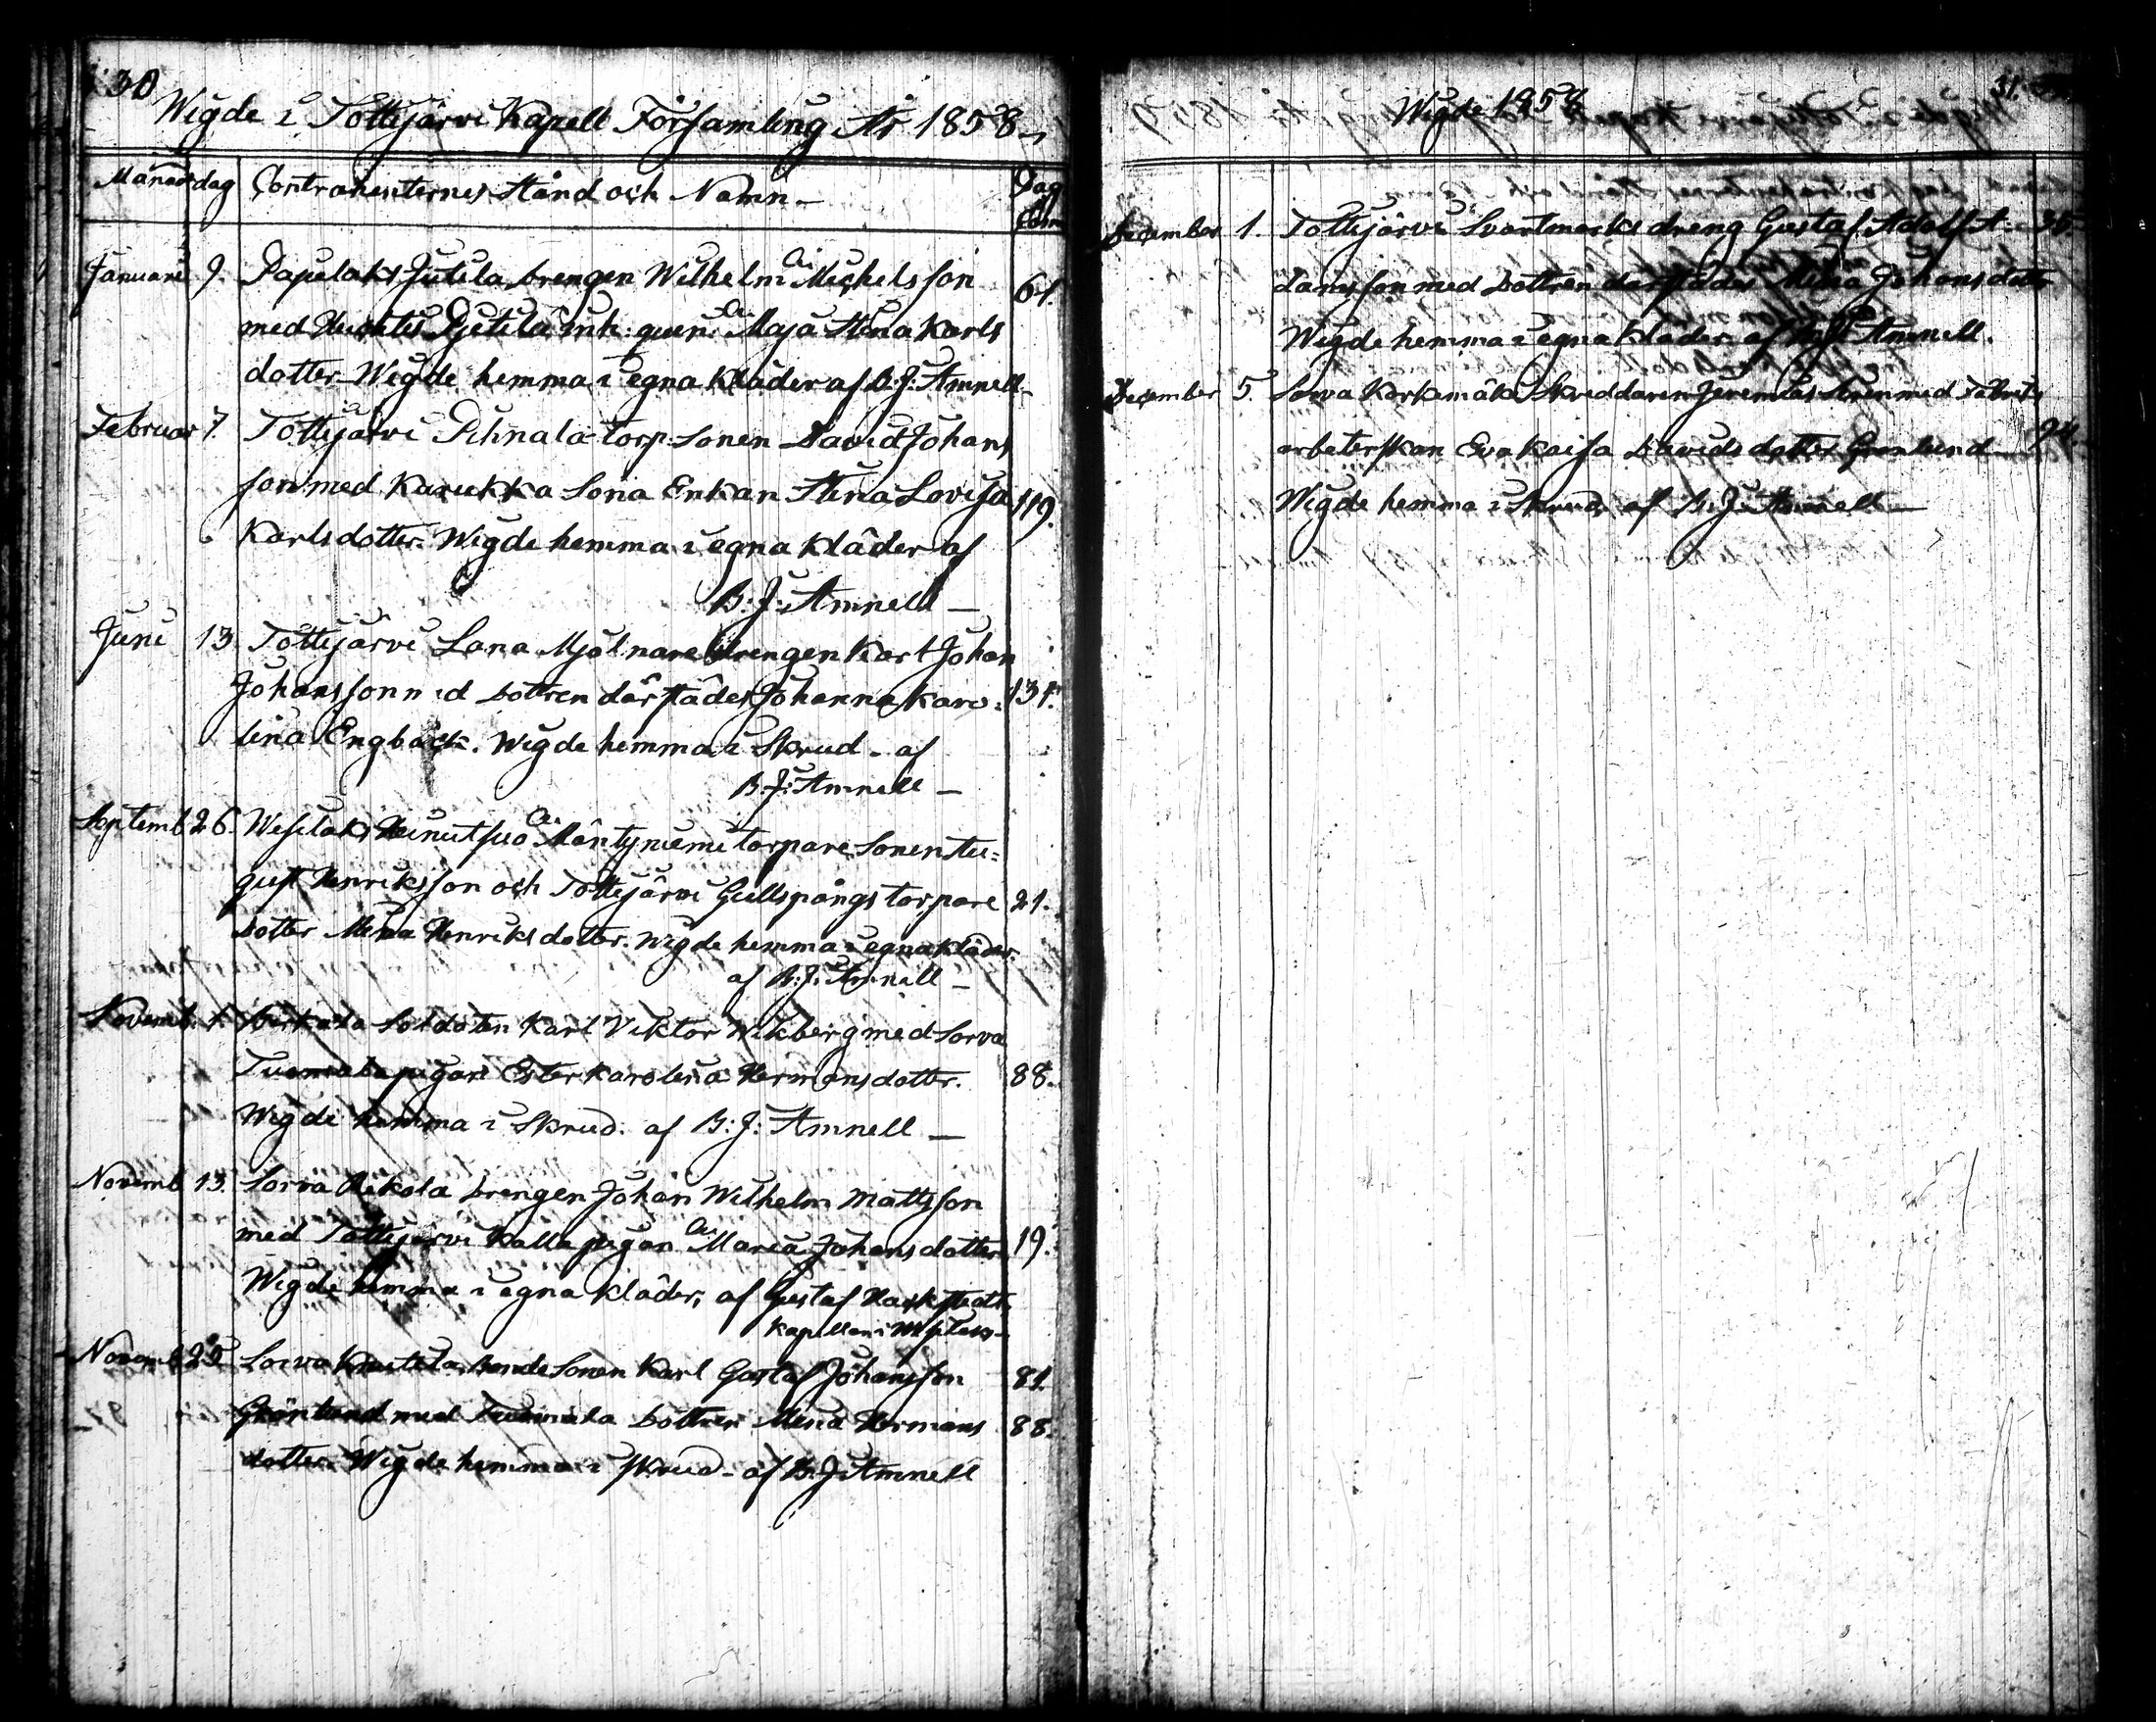 30
Wigde i Tottijärvi Kapell Församling År 1858
Månad dag Contrahenternes Stånd och Namn
Pag
Januari 9. Papilaks Jutila drengen Wilhelm Michelsson 61.
med inh: qvin: Maja Stina Karls
dotter Wigde hemma i egna Kläder af B:J: Amnell
Februar 7. Tottijärvi Pihnala torp. Sonen David Johans
son med Karukka Sona Enkan Stina Lovisa 119.
Karlsdotter. Wigde hemma i egna Kläder af
B:J: Amnell
Juni 13 Tottijärvi Lana Mjölnare drengen Karl Johan
Johansson med dottren därstädes Johanna Karo- 131.
lina Engbäck. Wigde hemma i Skrud af
B:J: Amnell
Septemb 26. Wesilaks Mäntyniemi torpare Sonen Au=
gust Henriksson och Tottijärvi Gullspångs torpare 21.
dotter Mina Henriksdotter. Wigde hemma i egna Kläder.
af B:J: Amnell
Novemb. 1. Birkala Soldaten Karl Viktor Wikberg med Sorva
Tuomala pigan Ester Karolina Hermansdotter. 88.
Wigde hemma i Skrud. af B:J: Amnell
Novemb 13. Sorva Rikola drengen Johan Wilhelm Mattsson
med Tottijärvi Kalla pigan Maria Johansdotter 19.
Wigde hemma i egna Kläder, af Gustaf
Kapellan i
Novemb 25 Sorva Bonde Sonen Karl Gustaf Johansson 81.
Grönlund med Tuomala dottren Mina Hermans 88.
dotter. Wigde hemma i Skrud af B:J: Amnell
31.
Wigde 1858
December 1. Tottijärvi Svartmarks dreng Gustaf Adolf A: 35
damsson med dottren därstädes Mina Johansdotter
Wigde hemma i egna Kläder af B:J: Amnell.
December 5. Sorva Korkemäki Skreddaren Jeremias med Fabriks
arbeterskan Eva Kaisa Davidsdotter Grönlund
Wigde hemma i Skrud af B:J: Amnell